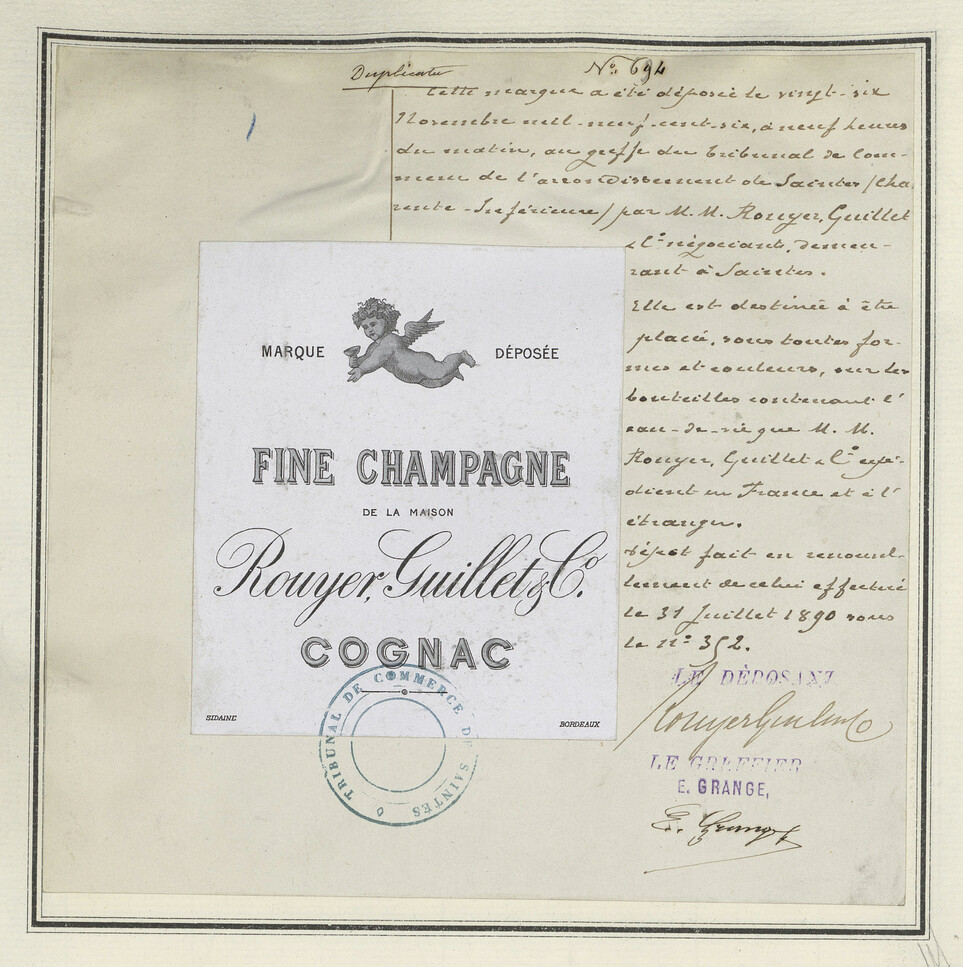 Duplicata
No. 694
Cette marque a été déposée le vingt-six
Novembre mil-neuf-cent-six, à neuf heures
du matin, au greffe du Tribunal de Com-
merce de l'arrondissement de Saintes (Cha
rente-Inférieure) par M.M. Rouyer, Guillet
& Cie négociants, demeu-
rant à Saintes.
Elle est destinée à être
placée, sous toutes for-
mes et couleurs, sur les
bouteilles contenant l'
eau-de-vie que M.M.
Rouyer, Guillet & Cie expé-
dient en France et à l'
étranger.
Dépôt fait en renouvel-
lement de celui effectué
le 31 Juillet 1890 sous
le No. 352.
MARQUE DÉPOSÉE
FINE CHAMPAGNE
DE LA MAISON
Rouyer, Guillet & Co.
COGNAC
SIDAINE BORDEAUX
TRIBUNAL DE COMMERCE DE SAINTES
LE DÉPOSANT
Rouyer Guillet & Co
LE GREFFIER
E. GRANGE,
E. Grange